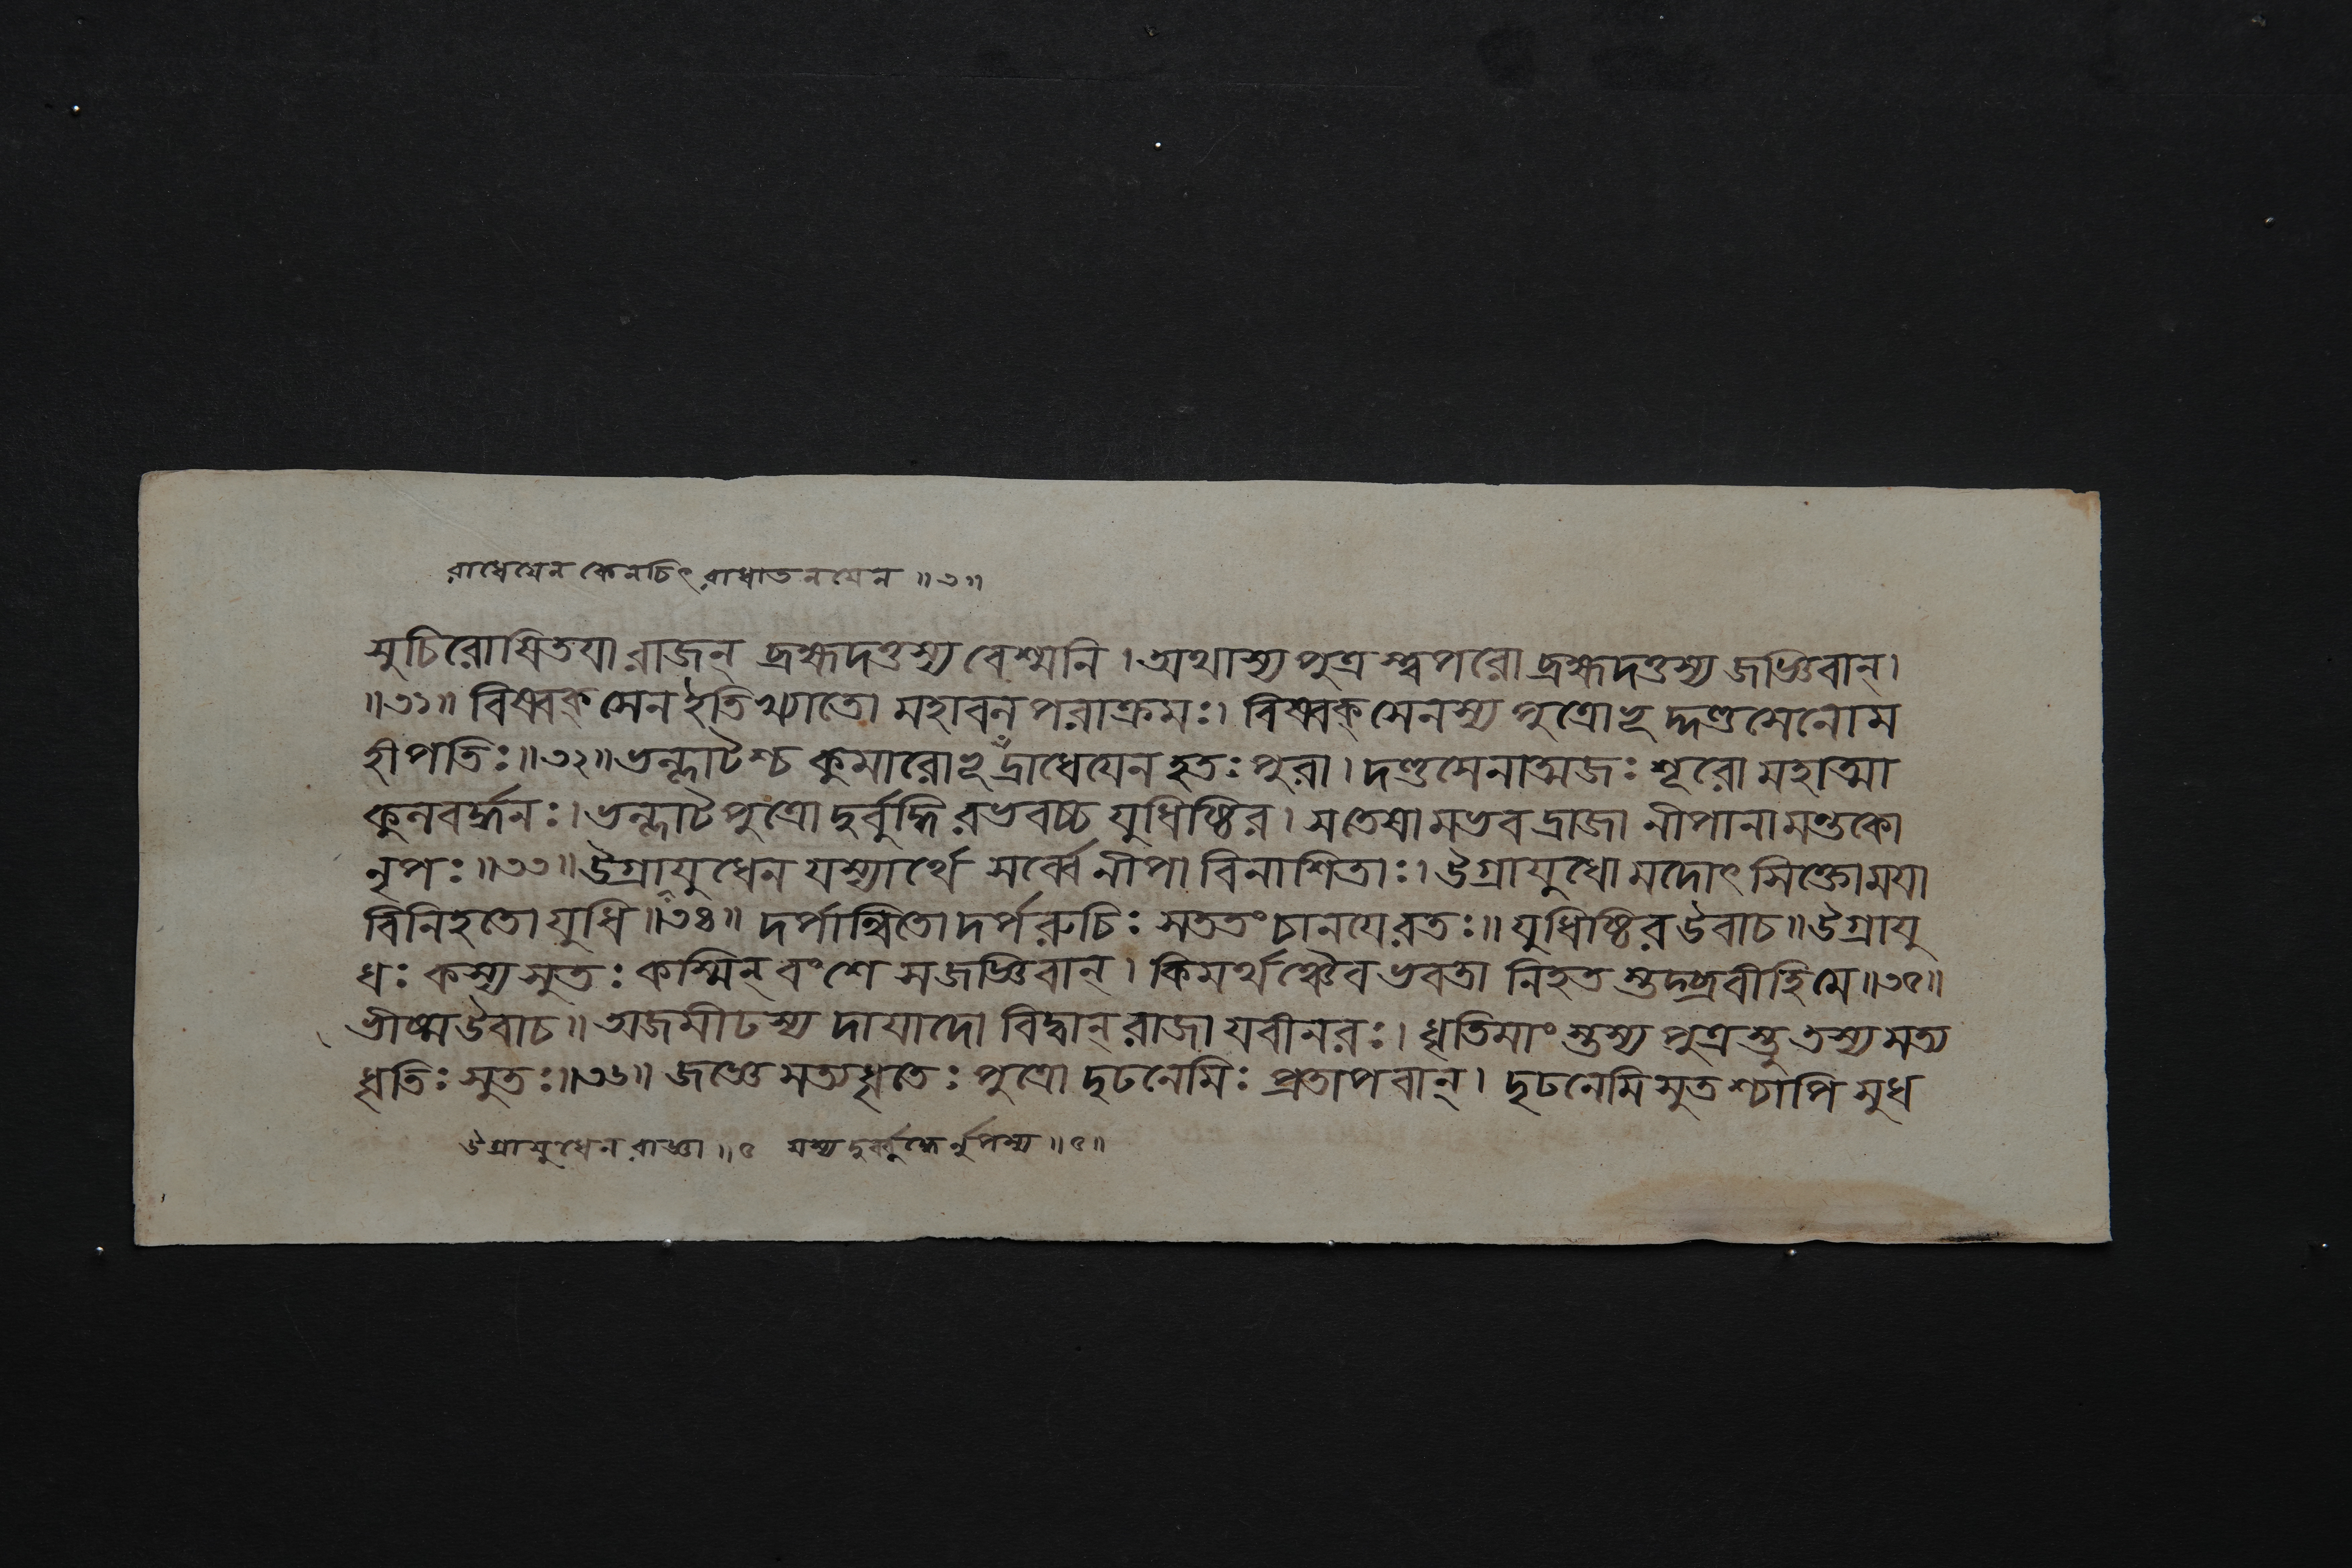 রাধেযেন কেনচিৎ রাধাতনযেন ॥৩॥
সুচিরোষিতযা রাজন্ ব্রহ্মদত্তস্য বেশ্মনি । অথাস্য পুত্রস্ত্বপরো ব্রহ্মদত্তস্য জজ্ঞিবান্ ।
॥৩১॥ বিষ্বক্সেন ইতি খ্যাতো মহাবলপরাক্রমঃ । বিষ্বক্সেনস্য পুত্রোভূদ্দণ্ডসেনো ম
হীপতিঃ ॥৩২॥ ভল্লাটশ্চ কুমারোভূদ্রাধেযেন হতঃ পুরা । দণ্ডসেনাত্মজঃ শূরো মহাত্মা
কুলবর্দ্ধনঃ । ভল্লাটপুত্রো দুর্বুদ্ধিরভবচ্চ যুধিষ্ঠির । স তেষামভবদ্রাজা নীপানামন্তকো
নৃপঃ ॥৩৩॥ উগ্রাযুধেন যস্যার্থে সর্ব্বে নীপা বিনাশিতাঃ । উগ্রাযুধো মদোৎসিক্তো মযা
বিনিহতো যুধি ॥৩৪॥ দর্পান্বিতো দর্পরুচিঃ সততং চানযে রতঃ ॥ যুধিষ্ঠির উবাচ ॥ উগ্রাযু
ধঃ কস্য সুতঃ কস্মিন্ বংশে স জজ্ঞিবান্ । কিমর্থঞ্চৈব ভবতা নিহতস্তদ্ব্রবীহি মে ॥৩৫॥
ভীষ্ম উবাচ ॥ অজমীঢস্য দাযাদো বিদ্বান্ রাজা যবীনরঃ । ধৃতিমাংস্তস্য পুত্রস্তু তস্য সত্য
ধৃতিঃ সুতঃ ॥৩৬॥ জজ্ঞে সত্যধৃতেঃ পুত্রো দৃঢনেমিঃ প্রতাপবান্ । দৃঢনেমিসুতশ্চাপি সুধ
উগ্রাযুধেন রাজ্ঞা ॥৫ যস্য দুর্ব্বুদ্ধের্নৃপস্য ॥৫॥